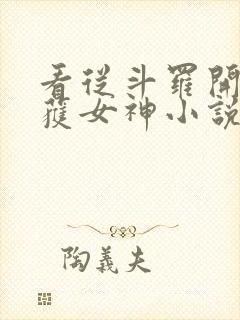 看從斗羅開
獲女神小說
陶義夫